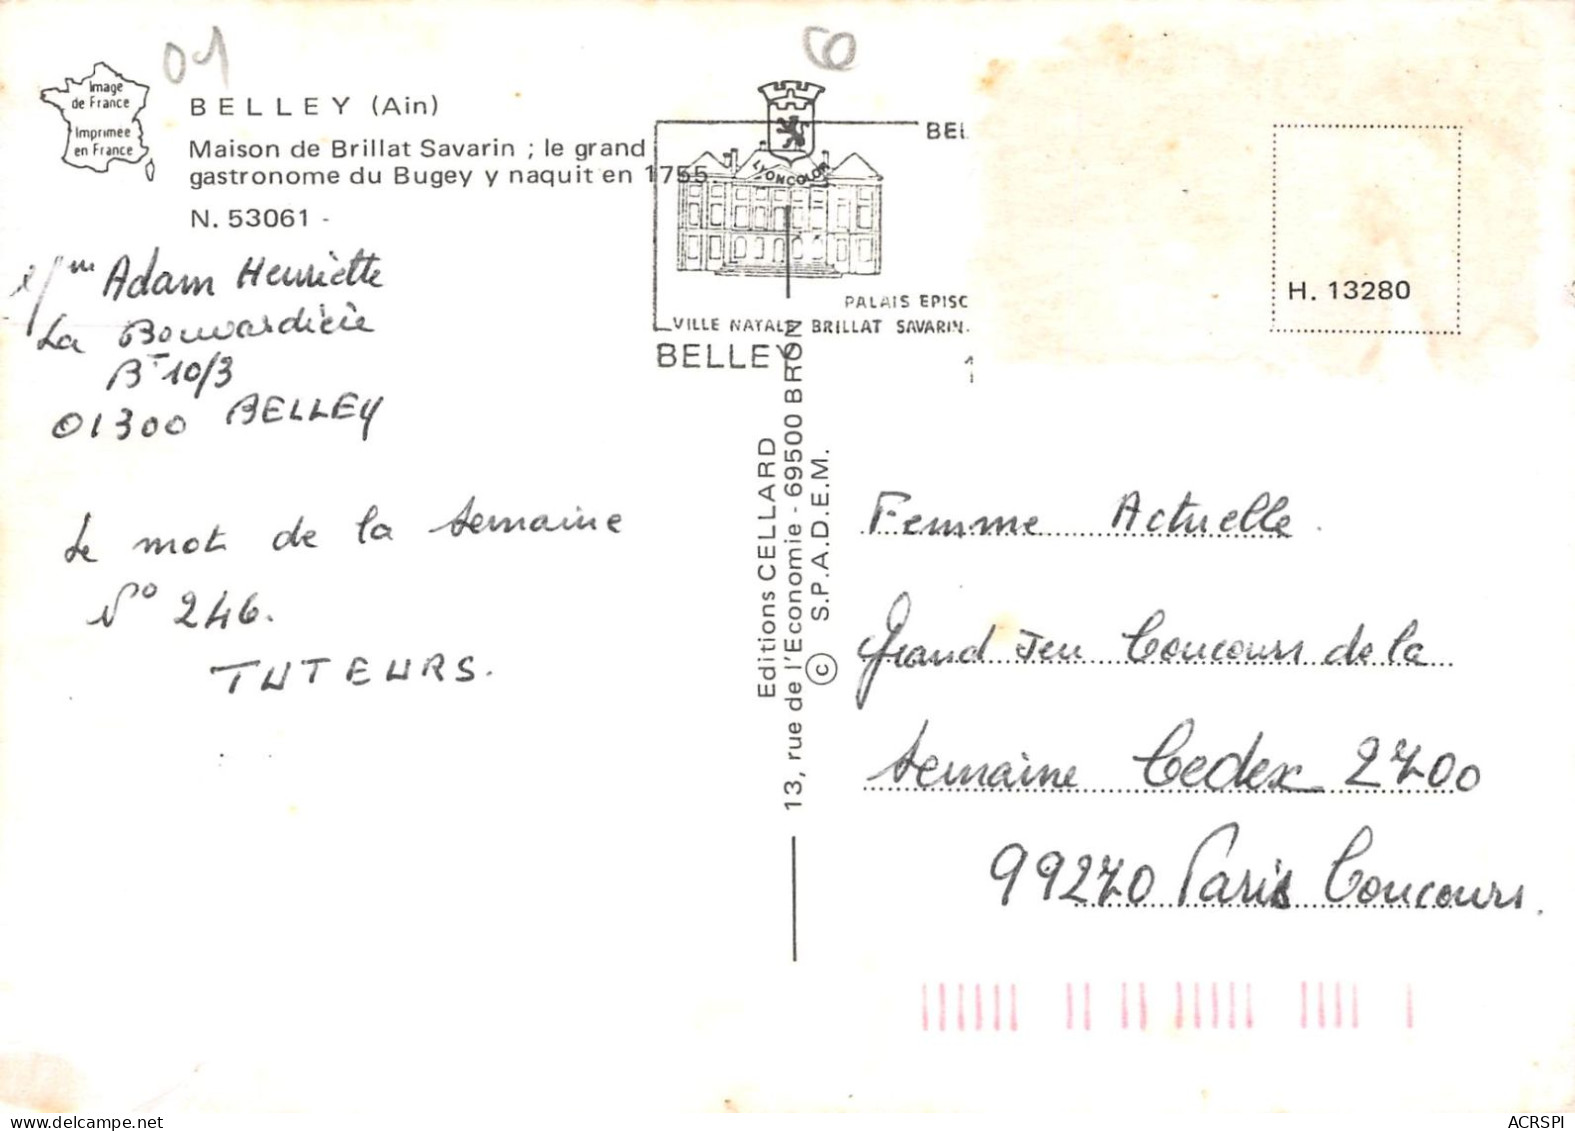 01
Image
de France
Imprimée
en France
BELLEY (Ain)
Maison de Brillat Savarin ; le grand
gastronome du Bugey y naquit en 1755.
N. 53061 -
Mme Adam Henriette
La Bouvardière
Bt 10/3
01300 BELLEY
Le mot de la semaine
N° 246.
TUTEURS.
LYONCOLOR
BEL
PALAIS EPISC
VILLE NATALE BRILLAT SAVARIN.
BELLEY
1
Editions CELLARD
13, rue de l'Economie - 69500 BRON
© S.P.A.D.E.M.
H. 13280
Femme Actuelle.
Grand Jeu Concours de la
semaine Cedex 2700
99270 Paris Concours.
ACRSPI